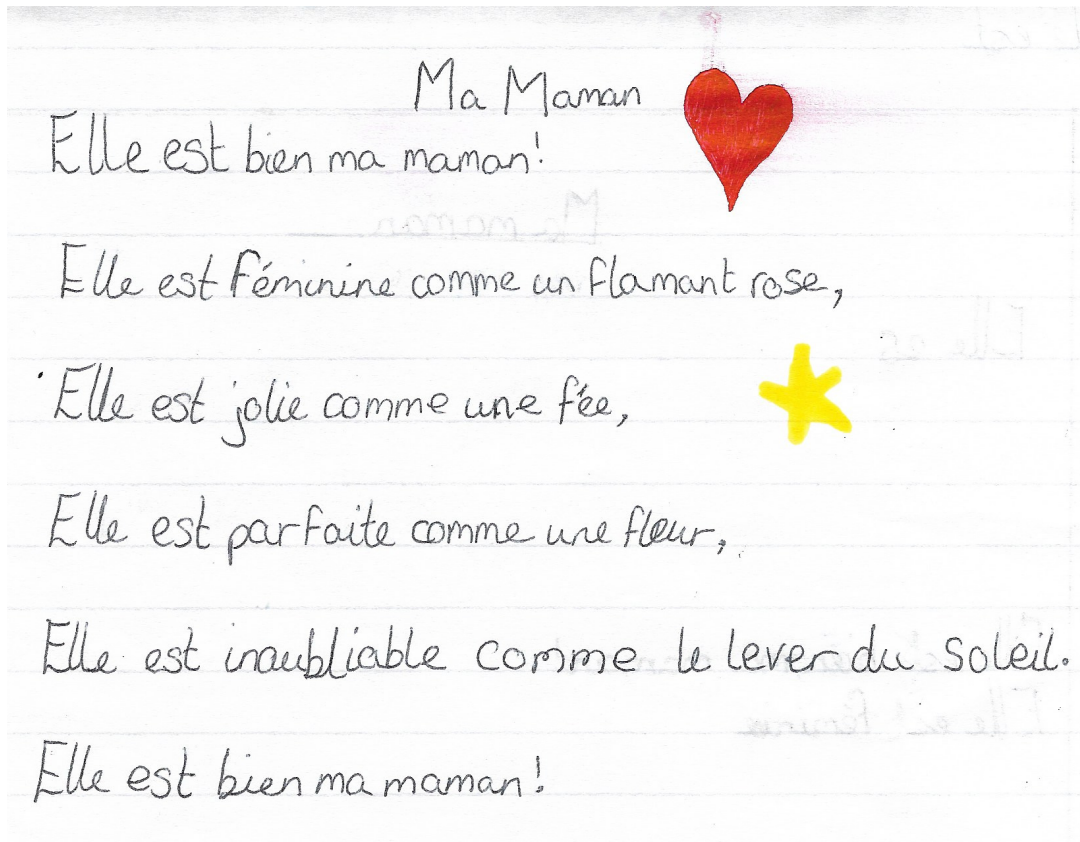 Ma Maman
Elle est bien ma maman!
Elle est féminine comme un flamant rose,
Elle est jolie comme une fée,
Elle est parfaite comme une fleur,
Elle est inoubliable comme le lever du soleil.
Elle est bien ma maman!